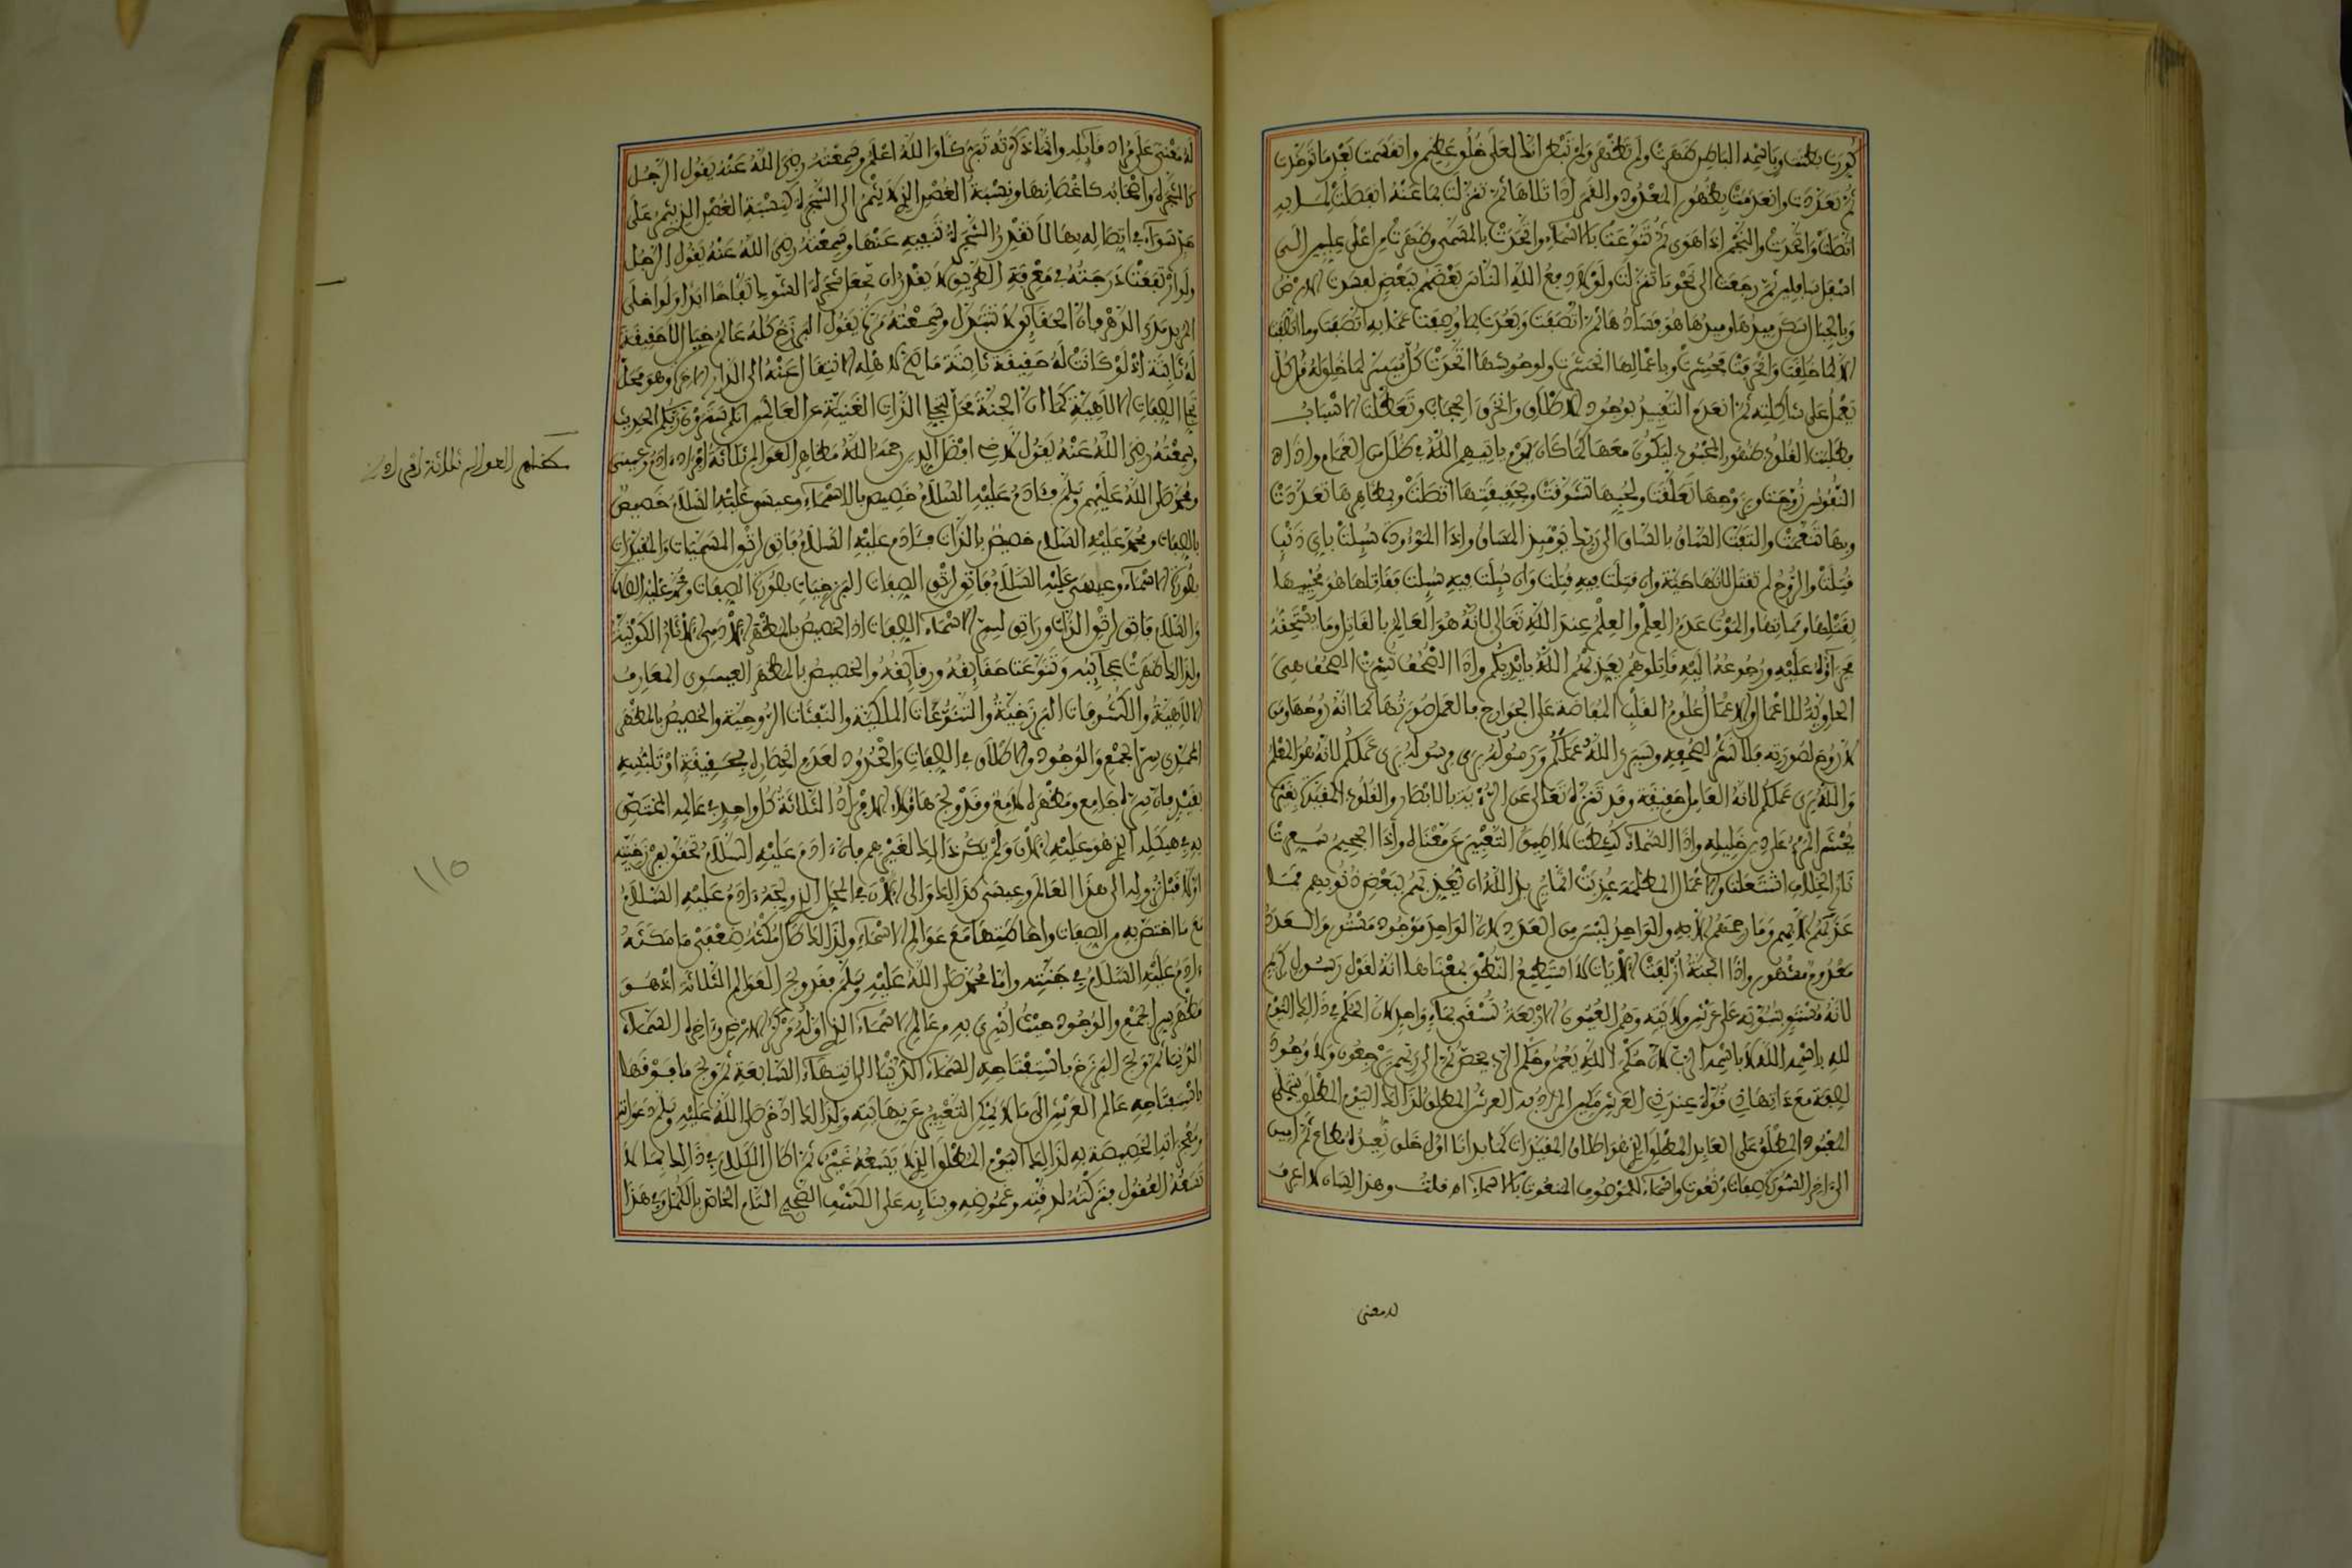 كورت بطنت وباسمه الباطن ظهرت ولم تظهر ولم تبطن انك لعلى خلق عظيم وانقسمت بعد ما توحدت
ثم تعددت وانعدمت بظهور المعدود والقمر اذا تلاها ثم تنزلت بما عنه انفصلت لما به
اتصلت واتحدت والنجم اذا هوى ثم تنوعت بالاسماء واتحدت بالمسمى وظهرت من اعلى عليين الى
اسفل سافلين ثم رجعت الى نحو ما تنزلت ولولا دفع الله الناس بعضهم ببعض لفسدت الارض
وبالجبال سكن ميدها وميدها هو فسادها ثم اتصفت وبعدت بما وصفت عما به اتصفت وما اتصفت
الا بما خلقت وانحرفت فحشرت وباعمالها انحشرت ولوحوشها اتحدت كل ميسر لما خلق له قل كل
يعمل على شاكلته ثم انعدم التقييد بوجود الاطلاق وانخرق الحجاب وتعطلت الاسباب
فطلبت القلوب ظهور المحبوب ليكون معها كما كان يوم ياتيهم الله في ظلل من الغمام واذا
النفوس زوجت وبزوجها تعلقت ولحبها تشوقت وبحقيقتها اتصلت وبمظاهرها تعددت
وبها تنعمت والتفت الساق بالساق الى ربك يومئذ المساق واذا الموءودة سئلت باي ذنب
قتلت والروح لم تقتل لانها حية وان قتلت فيه قتلت وان سئلت فيه سئلت فقاتلها هو محييها
بقتلها ومماتها والموت عدم العلم والعلم عند الله تعالى لانه هو العالم بالقاتل وما يستحقه
جزاؤه عليه ورجوعه اليه قاتلوهم يعذبهم الله بايديكم واذا الصحف نشرت الصحف هي
الحاوية للاعمال والاعمال علوم القلب المفاضة على الجوارح فالعمل صورتها كما انه روحها ومن
لا روح لصورته فلا نشر لصحفه وسيرى الله عملكم ورسوله يرى ورسوله يرى عملكم لانه هو المعلم
والله يرى عملكم لانه العامل حقيقة وقد تنزه تعالى عن الرؤية بالابصار والقلوب المقيدة بغيره
يحشر المرء على دين خليله واذا السماء كشطت لا اطيق التعبير عن معناه واذا الجحيم سعرت
نار الخلاف اشتعلت والاعمال المظلمة عذبت انما يريد الله ان يعذبهم ببعض ذنوبهم فما
عذبهم الا بهم وما رحمهم الا به والواحد ليس من العدد لان الواحد موجود مستتر والعدد
معدوم مظهور واذا الجنة ازلفت الايات لا استطيع النطق بمعناها انه لقول رسول كريم
لانه مستو بسورته على عرش ولايته وهم العيون الاربعة تسقى بماء واحد لان الحكم في ذلك اليوم
لله باسمه الله لا باسمه الرب لان حكم الله يعم وحكم الرب يخص ثم الى ربهم يرجعون ولا وجود
لصفة مع ذاتها ذي قوة عند ذي العرش مكين المراد به العرش المطلق لذلك اليوم المطلق يتجلى
المعبود المطلق على العابد المطلق الذي هو اطلاق المقيدات كما بدانا اول خلق نعيده مطاع ثم امين
الى اخر السورة صفات ونعوت واسماء للموصوف المنعوت بالاسماء اه قلت وهذا اللسان لا اعرف
له معنى
له معنى على مراد قائله وانما ذكرته تبركا والله اعلم وسمعته رضي الله عنه يقول الرجل
كالشجرة واصحابه كاغصانها ونسبة الغصن الذي لا يثمر الى الشجرة كنسبة الغصن الذي يثمر على
حد سواء في اتصاله بها لا تقدر الشجرة تنفيه عنها وسمعته رضي الله عنه يقول الرجل
ولو ارتفعت درجته في معرفة الطريق لا يقدر ان يجعل شجرة الشوك تفاحا ابدا ولو اختلى
المريد مدى الدهر فان الحقائق لا تتبدل وسمعته مرة يقول البرزخ كله عالم خيال لا حقيقة
له ثابتة اذ لو كانت له حقيقة ثابتة ما صح لاهله الانتقال عنه الى الدار الاخرة وهو محل
تجلي الصفات الالهية كما ان الجنة محل تجلي الذات الغنية عن العالمين انكم سترون ربكم الحديث
وسمعته رضي الله عنه يقول لاخي افضل الدين رحمه الله مظاهر العوالم ثلاثة افراد ءادم وعيسى
ومحمد صلى الله عليهم وسلم فئادم عليه السلام خصيص بالاسماء وعيسى عليه السلام خصيص
بالصفات ومحمد عليه السلام خصيص بالذات فئادم عليه السلام فاتق لرتق المسميات والمقيدات
بصورة الاسماء وعيسى عليه السلام فاتق لرتق الصفات البرزخيات بصورة الصفات ومحمد عليه الصلاة
والسلام فاتق لرتق الذات وراتق لسر الاسماء الصفات اذ الخصيص بالمظهر الادمي الاثار الكونية
ولذلك ظهرت عجائبه وتنوعت حقائقه ورقائقه والخصيص بالمظهر العيسوي المعارف
الالهية والكشوفات البرزخية والتنوعات الملكية والنفثات الروحية والخصيص بالمظهر
المحمدي سر الجمع والوجود والاطلاق في الصفات والحدود لعدم انحصاره بحقيقة او تلبسه
بقيد فان سره جامع ومظهره لامع وقد ولج هاؤلاء الافراد الثلاثة كل واحد في عالمه المختص
به في هيكله الذي هو عليه الان ولم يكن ذلك لغيرهم فان ءادم عليه السلام تحقق ببرزخيته
اولا قبل نزوله الى هذا العالم وعيسى كذلك والى الان في المحل الذي ولجه ءادم عليه السلام
مع ما اختص به من الصفات واحاطتها مع عوالم الاسماء ولذلك طال مكثه ضعفي ما مكثه
ءادم عليه السلام في جنته واما محمد صلى الله عليه وسلم فقد ولج العوالم الثلاثة اذ هو
مظهر سر الجمع والوجود حيث اسري به من عالم الاسماء الذي اوله مركز الارض وءاخره السماء
الدنيا ثم ولج البرزخ باستفتاحه السماء الدنيا الى انتهاء السابعة ثم ولج ما فوقها
باستفتاحه عالم العرش الى ما لا يمكن التعبير عن نهايته ولذلك ادخر صلى الله عليه وسلم دعواته
ومعجزاته الخصيصة به لذلك اليوم المطلق الذي لا يسعه غيره ثم اطال الكلام في ذلك بما لا
تسعه العقول فتركته لدقته وغموضه وبنائه على الكشف الصحيح التام الخاص بالكمل وفي هذا
مظاهر العوالم ثلاثة افراد
110